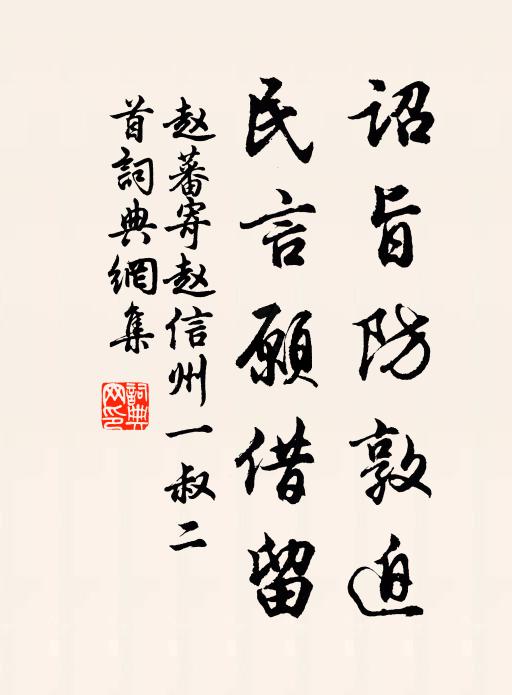 诏旨防敦迫
民言願借留
赵蕃寄赵信州一叔二
首詞典網集
詞典网印